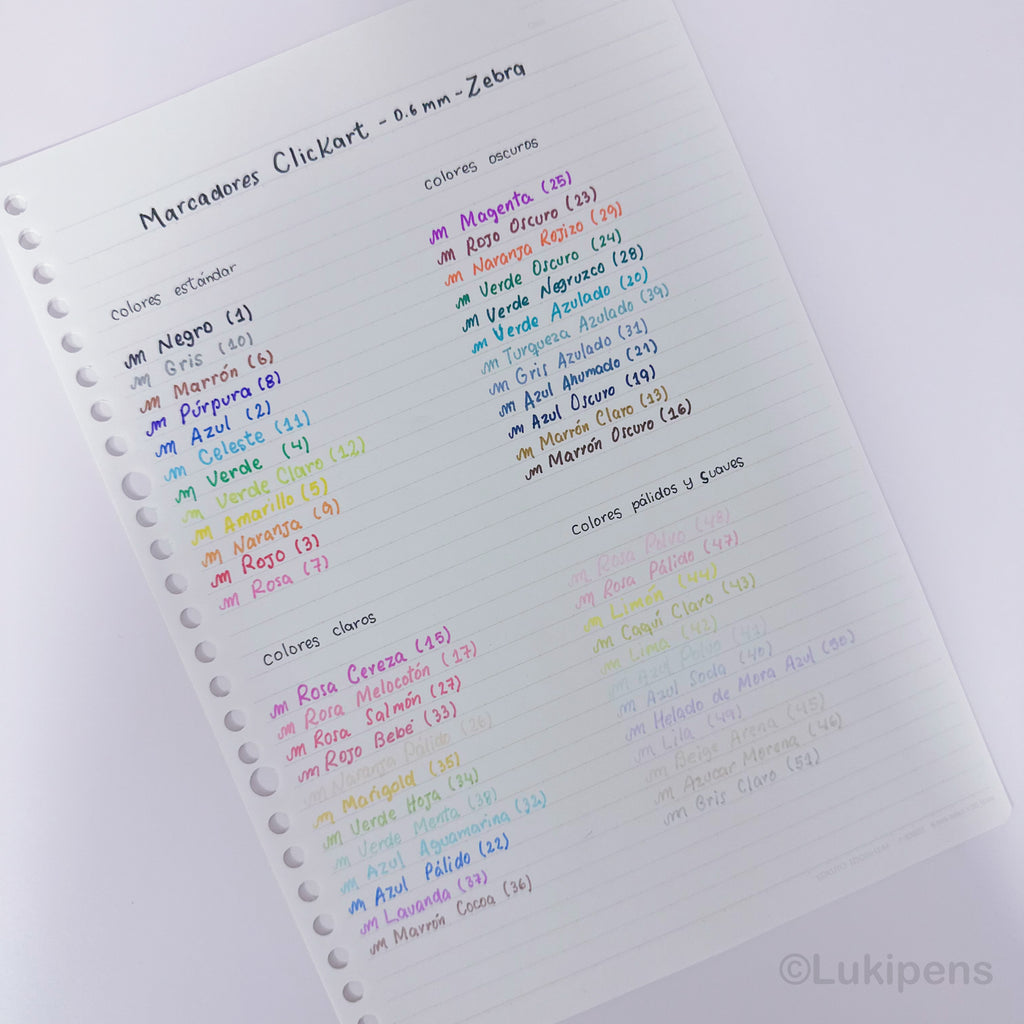 Marcadores Clickart - 0.6 mm - Zebra
colores estándar
m Negro (1)
m Gris (10)
m Marrón (6)
m Púrpura (8)
m Azul (2)
m Celeste (11)
m Verde (4)
m Verde Claro (12)
m Amarillo (5)
m Naranja (9)
m Rojo (3)
m Rosa (7)
colores oscuros
m Magenta (25)
m Rojo Oscuro (23)
m Naranja Rojizo (29)
m Verde Oscuro (24)
m Verde Negruzco (28)
m Verde Azulado (20)
m Turqueza Azulado (39)
m Gris Azulado (31)
m Azul Ahumado (21)
m Azul Oscuro (19)
m Marrón Claro (13)
m Marrón Oscuro (16)
colores claros
m Rosa Cereza (15)
m Rosa Melocotón (17)
m Rosa Salmón (27)
m Rojo Bebé (33)
m Naranja Pálido (26)
m Marigold (35)
m Verde Hoja (34)
m Verde Menta (38)
m Azul Aguamarina (32)
m Azul Pálido (22)
m Lavanda (37)
m Marrón Cocoa (36)
colores pálidos y suaves
m Rosa Polvo (48)
m Rosa Pálido (47)
m Limón (44)
m Caqui Claro (43)
m Lima (42)
m Azul Polvo (41)
m Azul Soda (40)
m Helado de Mora Azul (50)
m Lila (49)
m Beige Arena (45)
m Azucar Morena (46)
m Gris Claro (51)
©Lukipens